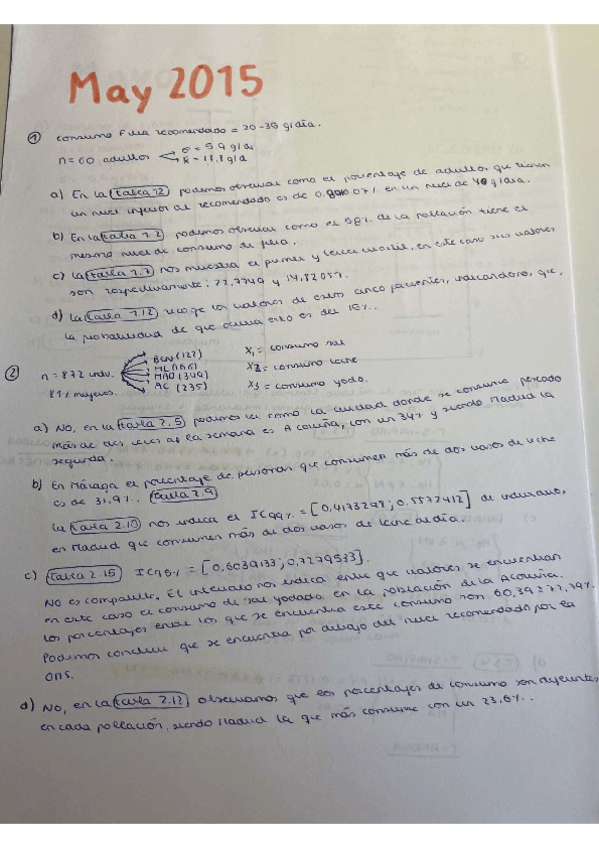 May 2015
① Consumo Fibra recomendado = 20-35 g/día.
n = 60 adultos σ = 5,9 g/d
x̄ = 18,8 g/d
a) En la tabla 12 podemos observar como el porcentaje de adultos que tienen
un nivel inferior al recomendado es de en un nivel de g/día.
b) En la tabla 7.2 podemos observar como el 58% de la población tiene el
mismo nivel de consumo de fibra.
c) La tabla 7.7 nos muestra el primer y tercer cuartil, en este caso sus valores
son respectivamente: 22,7749 y 14,82057.
d) La tabla 7.12 recoge los valores de estos cinco pacientes, indicándonos, que,
la probabilidad de que ocurra esto es del 15%.
② n = 872 indv. BCN (122)
81% mujeres. MAD (349)
AC (235)
X₁ = consumo sal
X₂ = consumo leche
X₃ = consumo yodo.
a) No, en la tabla 2.5 podemos ver como la ciudad donde se consume pescado
más de dos veces a la semana es A Coruña, con un 34% y siendo Madrid la
segunda.
b) En Málaga el porcentaje de personas que consumen más de dos vasos de leche
es de 31.9%. tabla 2.9
La tabla 2.10 nos indica el IC99% = [0,4173298; 0,5572412] de individuos,
en Madrid que consumen más de dos vasos de leche al día.
c) tabla 2.15 IC95% = [0,6039133; 0,7279533].
No es compatible. El intervalo nos indica entre que valores se encuentran
en este caso el consumo de sal yodada en la población de la A Coruña.
Los porcentajes entre los que se encuentra este consumo son 60,39 = 77,79%
Podemos concluir que se encuentra por debajo del nivel recomendado por la
OMS.
d) No, en la tabla 2.12 observamos que los porcentajes de consumo son diferentes
en cada población, siendo Madrid la que más consume con un 23,6%.